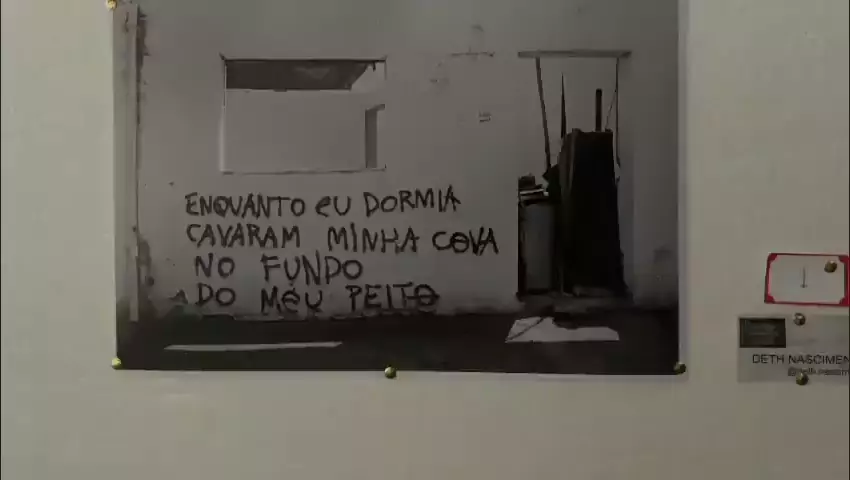 ENQUANTO EU DORMIA
CAVARAM MINHA COVA
NO FUNDO
DO MEU PEITO
DETH NASCIMEN